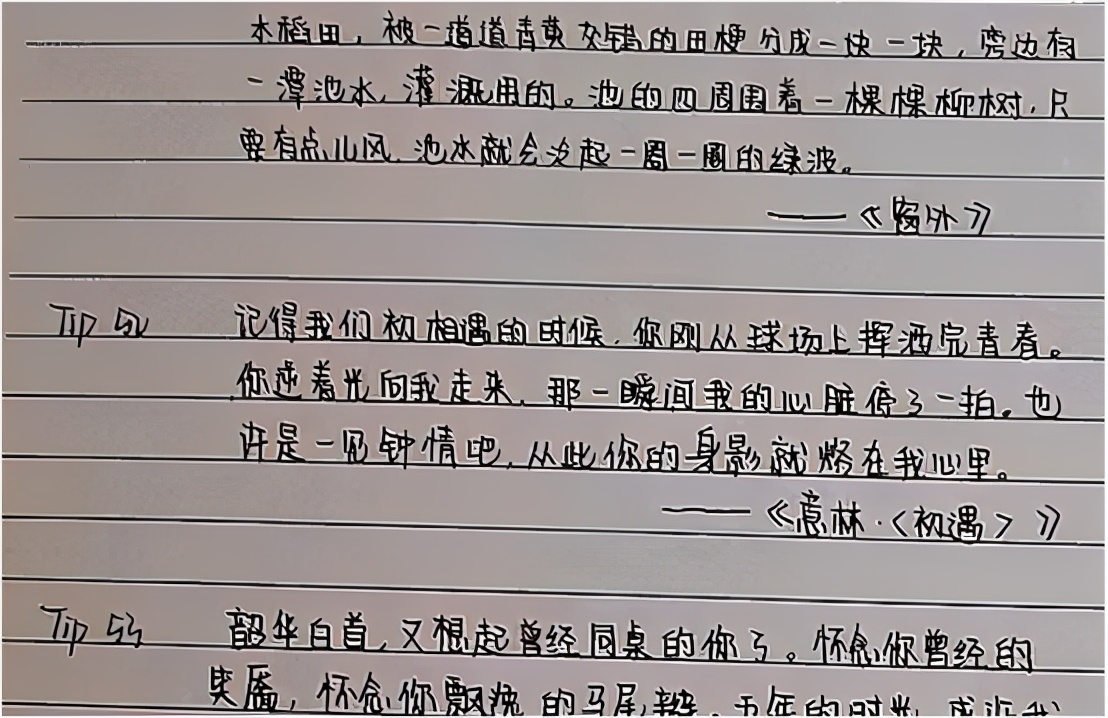 水稻田，被一道道青黄交错的田梗分成一块一块，旁边有
一潭池水，灌溉用的。池的四周围着一棵棵柳树，只
要有点儿风，池水就会泛起一圈一圈的绿波。
——《窗外》
Tip 52 记得我们初相遇的时候，你刚从球场上挥洒完青春。
你逆着光向我走来，那一瞬间我的心脏停了一拍。也
许是一见钟情吧，从此你的身影就烙在我心里。
——《意林·〈初遇〉》
Tip 53 韶华白首，又想起曾经同桌的你了。怀念你曾经的
笑靥，怀念你飘逸的马尾辫，五年的时光，或许我